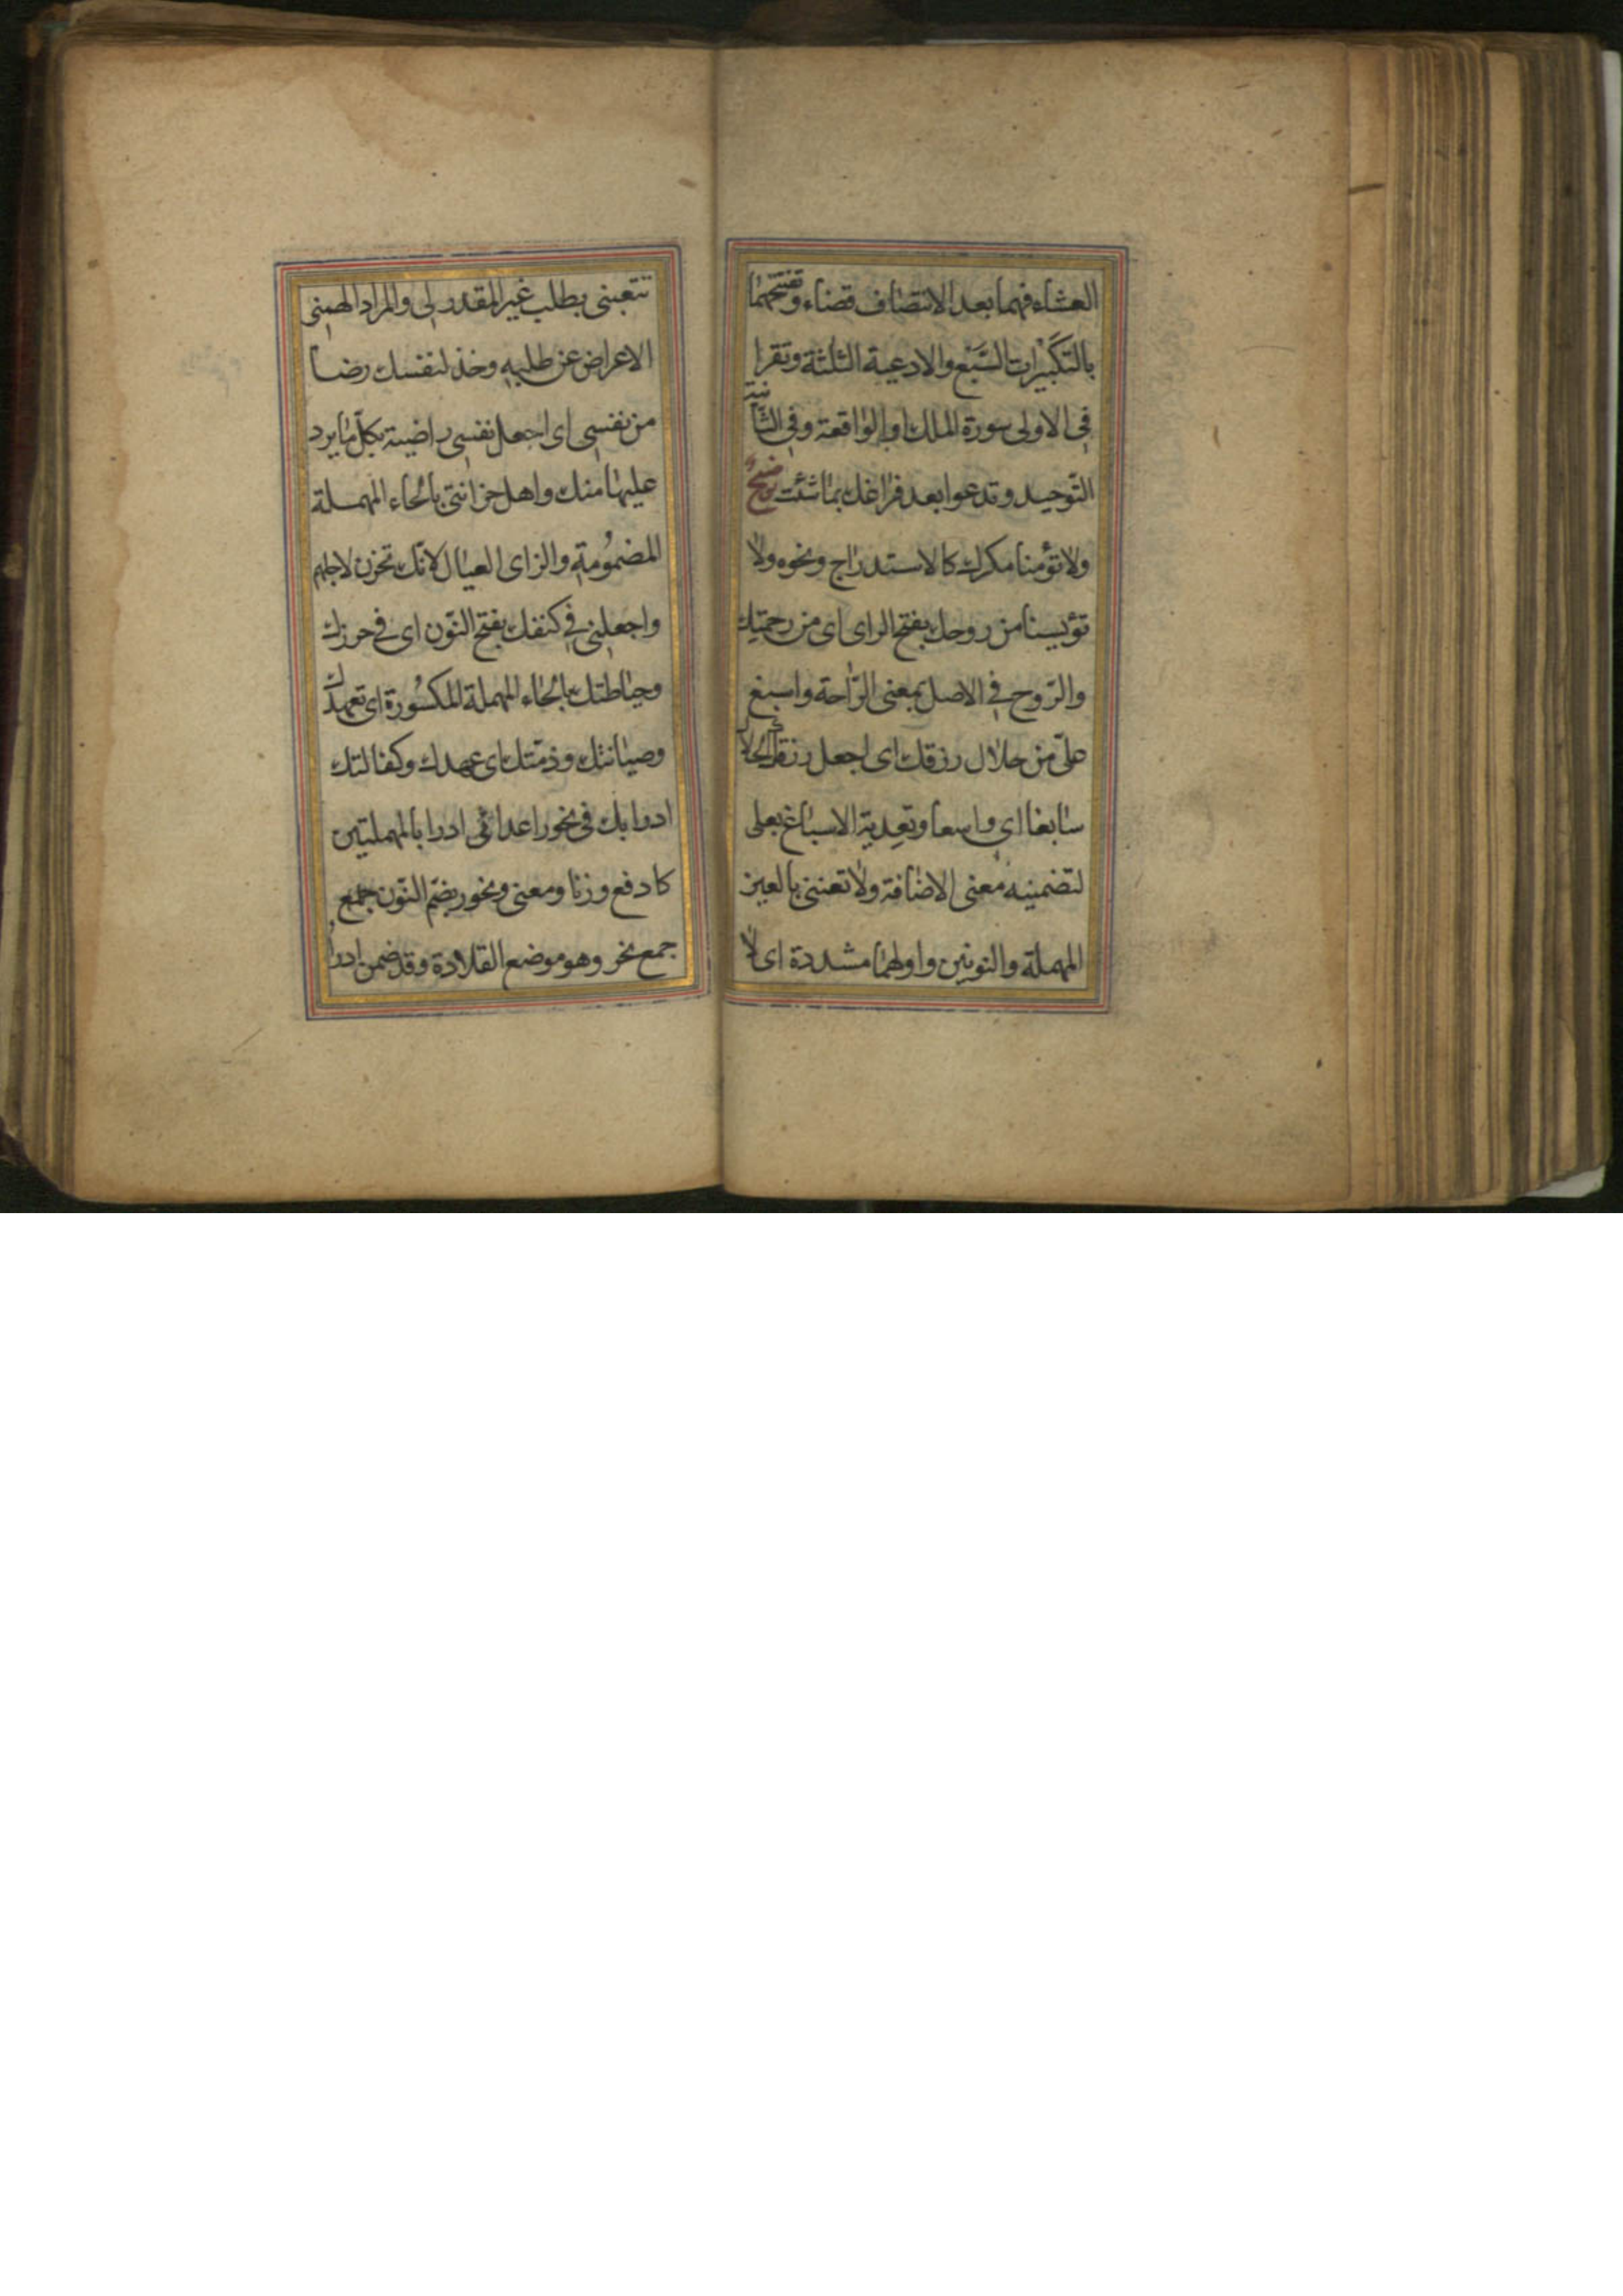 العشاء فهما بعد الانتصاف قضاء وتفتتحهما
بالتكبيرات السبع والادعية الثلثة وتقرا
فى الاولى سورة الملك او الواقعة وفى الثانية
التوحيد وتدعوا بعد فراغك بما شئت توضيح
ولا تؤمنا مكرك كالاستدراج ونحوه ولا
تؤيسنا من روحك بفتح الراى اى من رحمتك
والروح فى الاصل بمعنى الراحة واسبغ
علىّ من حلال رزقك اى اجعل رزقك الحلال
سابغا اى واسعا وتعدية الاسباغ بعلى
لتضمينه معنى الاضافة ولا تعننى بالعين
المهملة والنونين واولهما مشددة اى لا
تتعبنى بطلب غير المقدر لى والمراد الهمنى
الاعراض عن طلبه وخذ لنفسك رضا
من نفسى اى اجعل نفسى راضية بكل ما يرد
عليها منك واهل حزانتى بالحاء المهملة
المضمومة والزاى العيال لانك تحزن لاجلهم
واجعلنى فى كنفك بفتح النون اى فى حرزك
وحياطتك بالحاء المهملة المكسورة اى تعهدك
وصيانتك وذمتك اى عهدك وكفالتك
ادرا بك فى نحور اعدائى ادرا بالمهملتين
كادفع وزنا ومعنى ونحور بضم النون جمع
جمع نحر وهو موضع القلادة وقد ضمن ادرا